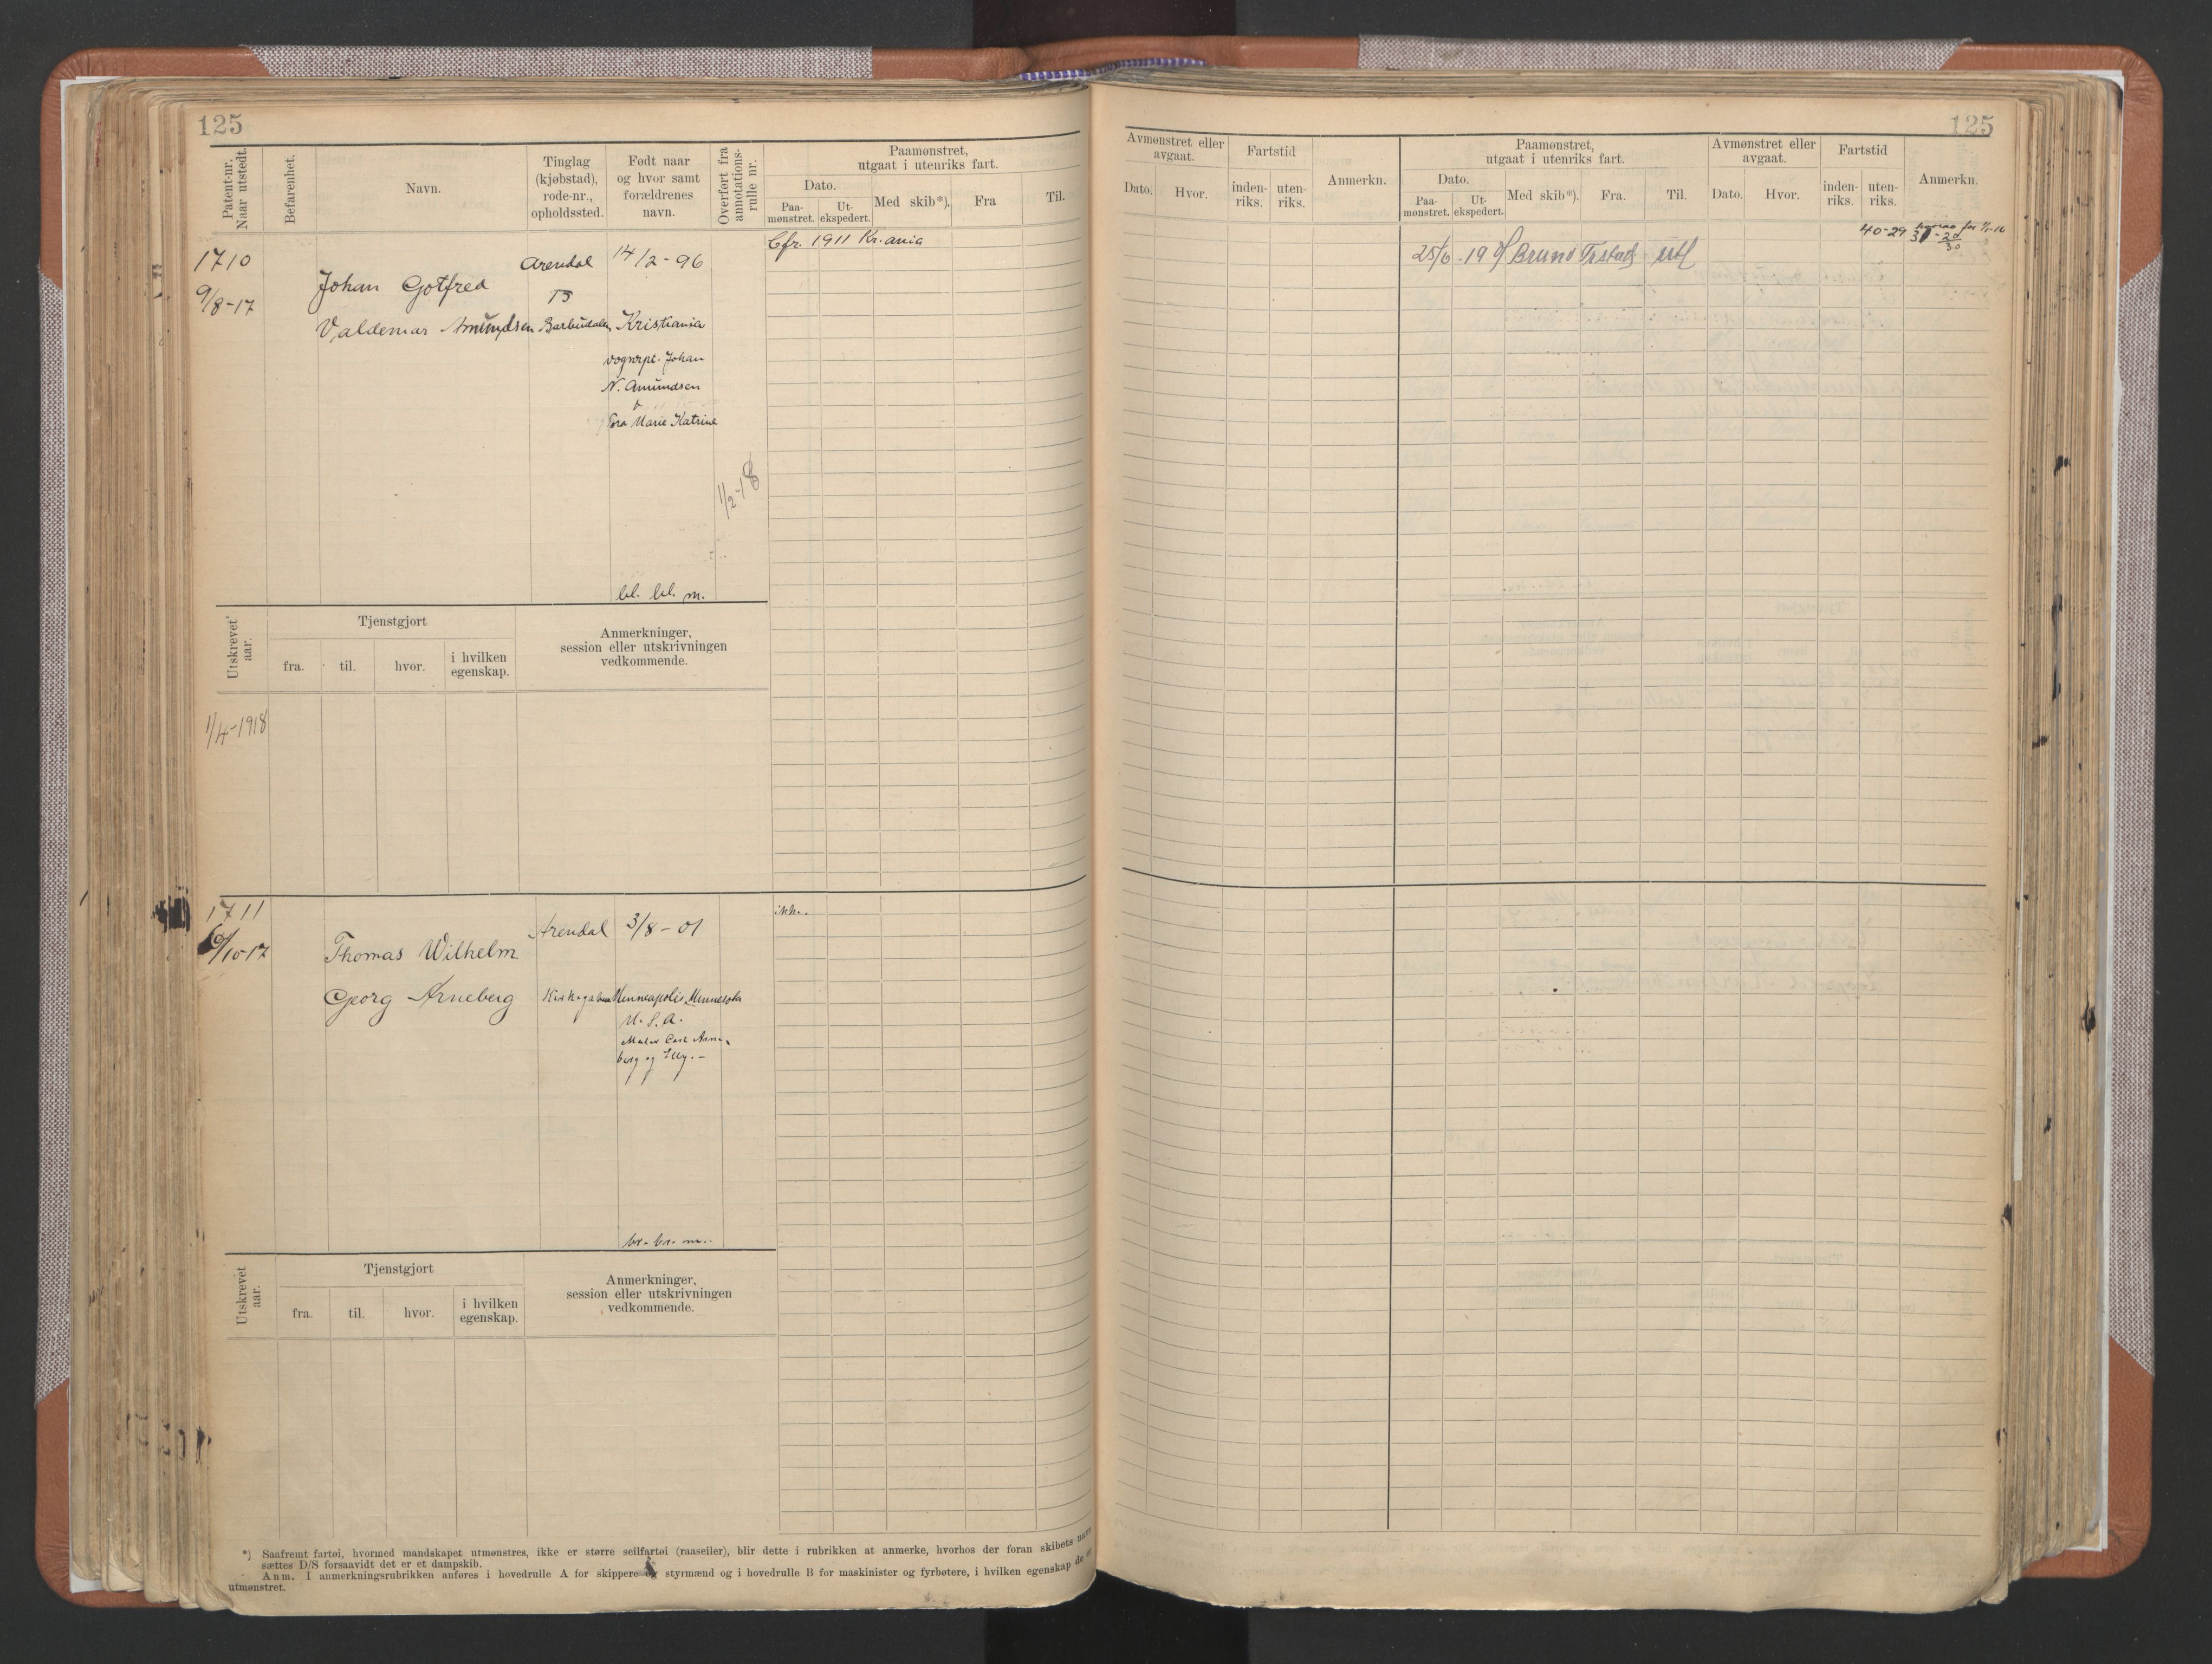 125
Patent-nr.
Naar utstedt.
Befarenhet.
Navn.
Tinglag
(kjøbstad),
rode-nr.,
opholdssted.
Født naar
og hvor samt
forældrenes
navn.
Overført fra
annotations-
rulle nr.
Paamønstret,
utgaat i utenriks fart.
Dato.
Paa-
mønstret.
Ut-
ekspedert.
Med skib*).
Fra
Til.
1710
9/8-17
Johan Gotfred
Valdemar Amundsen
Arendal
Barbudalen
14/2-96
Kristiania
Johan
N. Amundsen
Marie Katrine
1/2-18
bl. bl. m.
Cfr. 1911 Kr.ania
Utskrevet
aar.
Tjenstgjort
fra.
til.
hvor.
i hvilken
egenskap.
Anmerkninger,
session eller utskrivningen
vedkommende.
1/4-1918
1711
/10-17
Thomas Wilhelm
Georg Arneberg
Arendal
3/8-01
Minneapolis, Minnesota
U.S.A.
Maler Carl Arne-
berg og Elly.-
br. br. m.
ikke.
Utskrevet
aar.
Tjenstgjort
fra.
til.
hvor.
i hvilken
egenskap.
Anmerkninger,
session eller utskrivningen
vedkommende.
*) Saafremt fartøi, hvormed mandskapet utmønstres, ikke er større seilfartøi (raaseiler), blir dette i rubrikken at anmerke, hvorhos der foran skibets navn
sættes D/S forsaavidt det er et dampskib.
Anm. I anmerkningsrubrikken anføres i hovedrulle A for skippere og styrmænd og i hovedrulle B for maskinister og fyrbøtere, i hvilken egenskap de er
utmønstret.
125
Avmønstret eller
avgaat.
Dato.
Hvor.
Fartstid
inden-
riks.
uten-
riks.
Anmerkn.
Paamønstret,
utgaat i utenriks fart.
Dato.
Paa-
mønstret.
Ut-
ekspedert.
Med skib*).
Fra.
Til.
Avmønstret eller
avgaat.
Dato.
Hvor.
Fartstid
inden-
riks.
uten-
riks.
Anmerkn.
40-29
25/6-19 Bruno Tr.stad utl